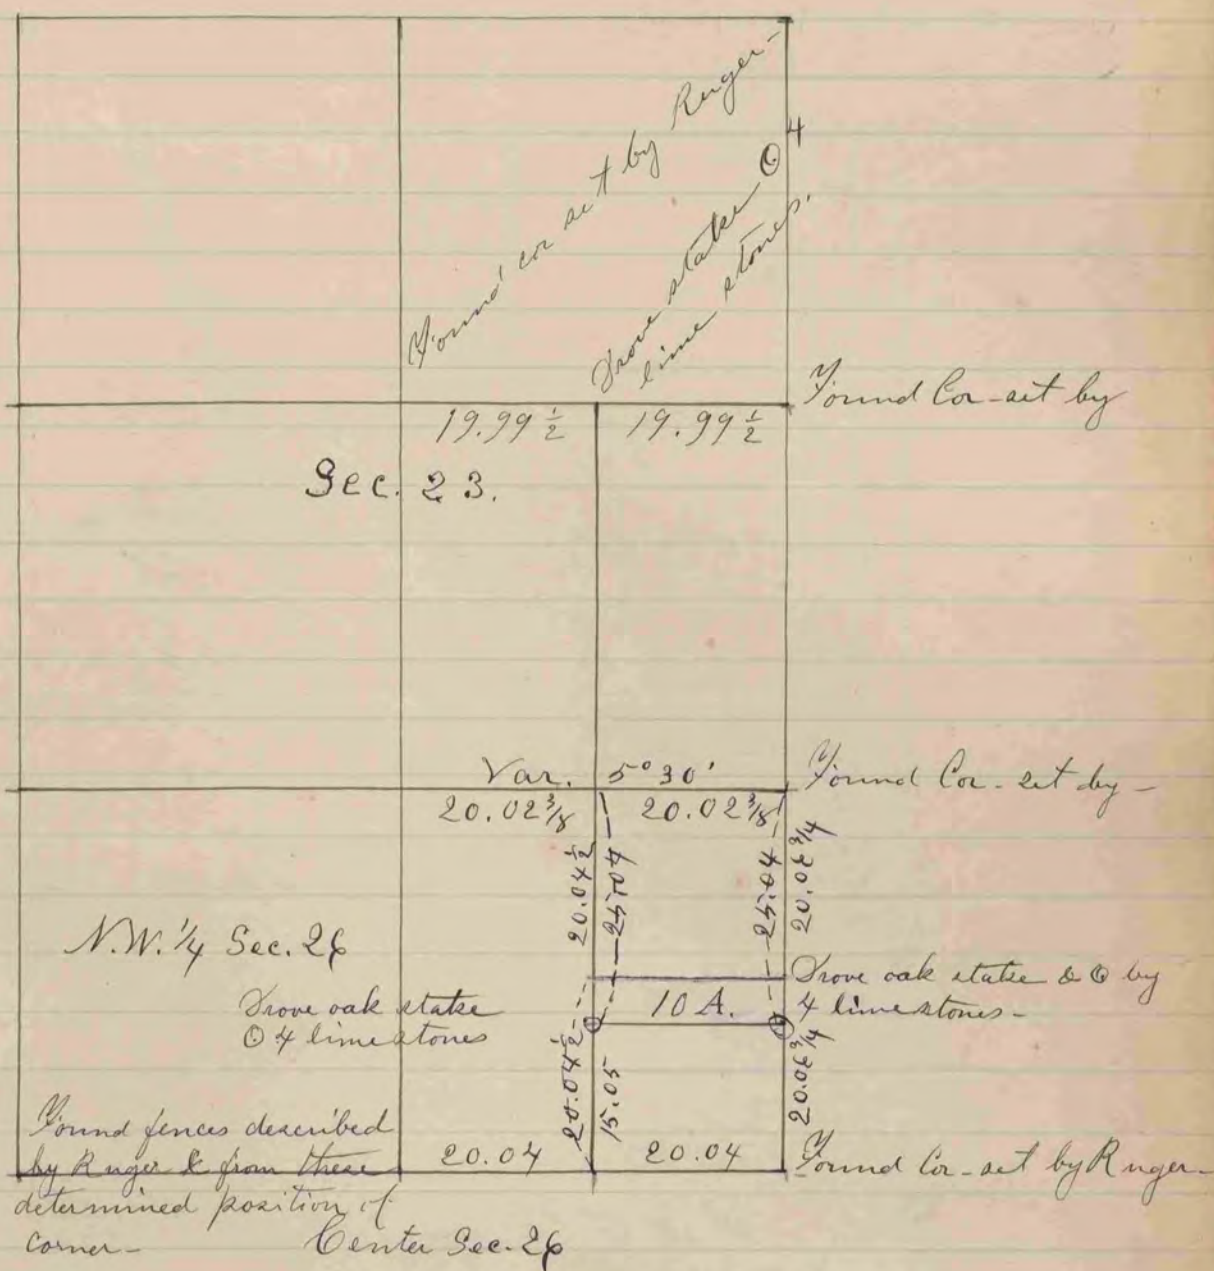 Found cor set by Ruger-
Drove stake ⊙ 4
lime stones.
Found Cor-set by
19.99 ½ 19.99 ½
Sec. 23.
Var. 5° 30'
Found Cor-set by-
20.02 ⅜ 20.02 ⅜
20.04 ½
25.04
25.04
20.06 ¾
N.W. ¼ Sec. 26
Drove oak stake & ⊙ by
4 limestones-
10 A.
Drove oak stake
⊙ 4 limestones
20.04 ½
15.05
20.06 ¾
Found fences described
by Ruger & from these
determined position of
corner-
20.04 20.04
Found Cor-set by Ruger-
Center Sec. 26